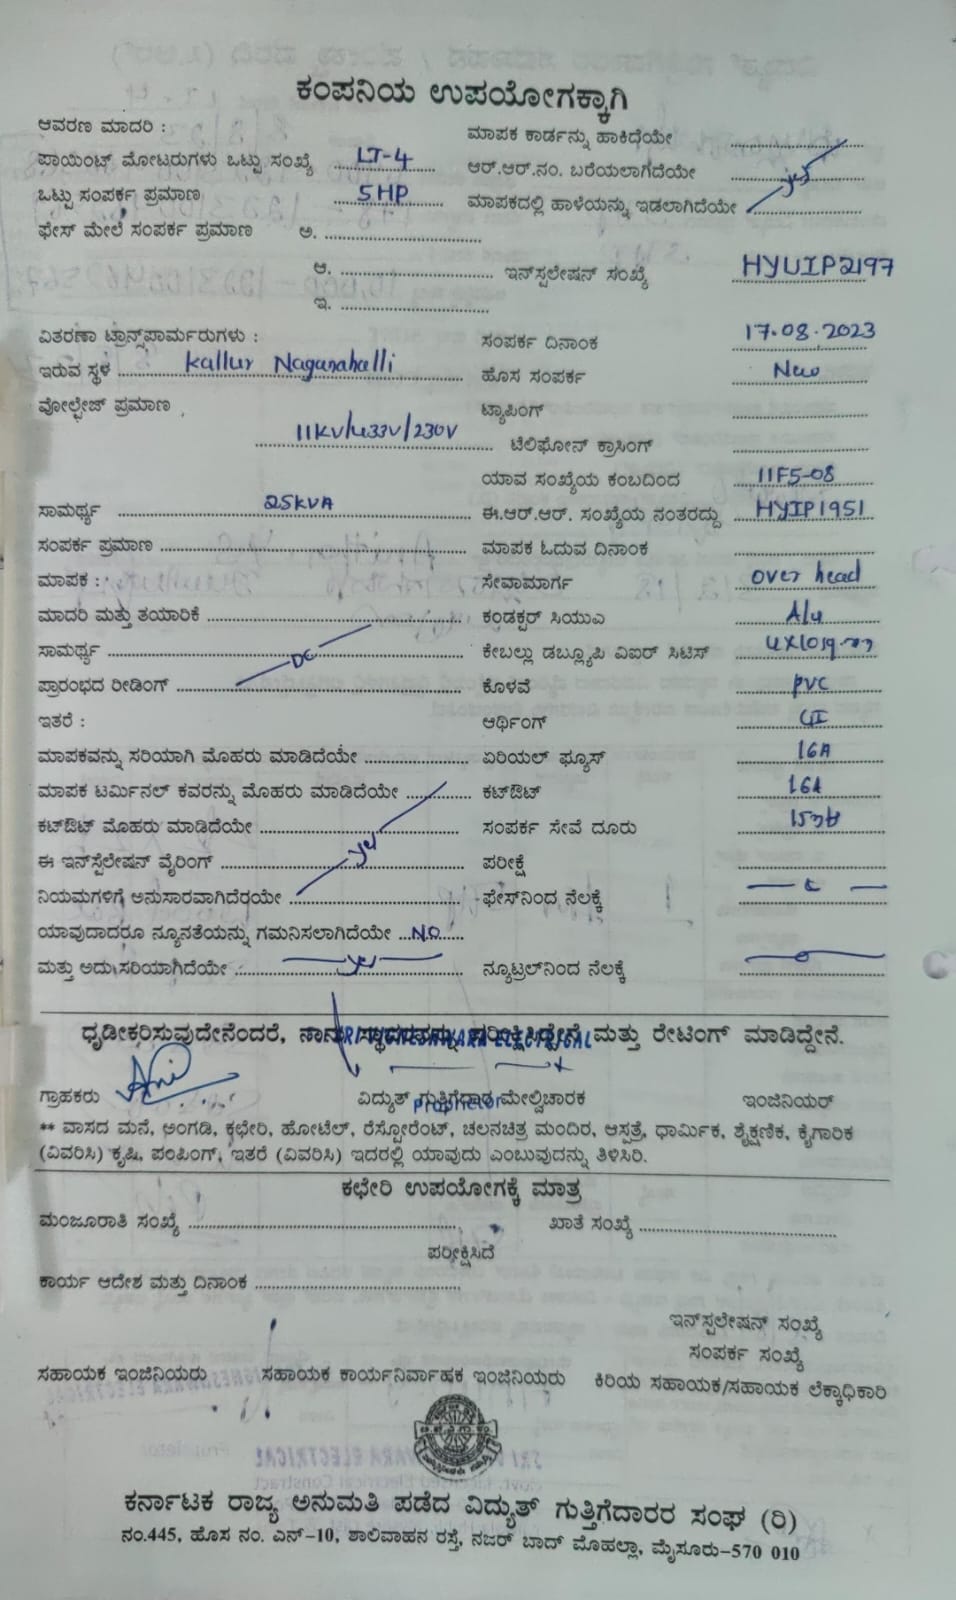 ಕಂಪನಿಯ ಉಪಯೋಗಕ್ಕಾಗಿ
ಆವರಣ ಮಾದರಿ : ಮಾಪಕ ಕಾರ್ಡನ್ನು ಹಾಕಿದೆಯೇ
ಪಾಯಿಂಟ್ ಮೋಟರುಗಳು ಒಟ್ಟು ಸಂಖ್ಯೆ LT-4 ಆರ್.ಆರ್.ನಂ. ಬರೆಯಲಾಗಿದೆಯೇ yes
ಒಟ್ಟು ಸಂಪರ್ಕ ಪ್ರಮಾಣ 5HP ಮಾಪಕದಲ್ಲಿ ಹಾಳೆಯನ್ನು ಇಡಲಾಗಿದೆಯೇ
ಫೇಸ್ ಮೇಲೆ ಸಂಪರ್ಕ ಪ್ರಮಾಣ ಅ.
ಆ. ಇನ್‌ಸ್ಪಲೇಷನ್ ಸಂಖ್ಯೆ HYUIP2197
ಇ.
ವಿತರಣಾ ಟ್ರಾನ್ಸ್‌ಫಾರ್ಮರುಗಳು : ಸಂಪರ್ಕ ದಿನಾಂಕ 17.08.2023
ಇರುವ ಸ್ಥಳ Kallur Naganahalli ಹೊಸ ಸಂಪರ್ಕ New
ವೋಲ್ಟೇಜ್ ಪ್ರಮಾಣ ಟ್ಯಾಪಿಂಗ್
11KV/433V/230V ಟೆಲಿಫೋನ್ ಕ್ರಾಸಿಂಗ್
ಯಾವ ಸಂಖ್ಯೆಯ ಕಂಬದಿಂದ 11F5-08
ಸಾಮರ್ಥ್ಯ 25KVA ಈ.ಆರ್.ಆರ್. ಸಂಖ್ಯೆಯ ನಂತರದ್ದು HYIP1951
ಸಂಪರ್ಕ ಪ್ರಮಾಣ ಮಾಪಕ ಓದುವ ದಿನಾಂಕ
ಮಾಪಕ : ಸೇವಾಮಾರ್ಗ over head
ಮಾದರಿ ಮತ್ತು ತಯಾರಿಕೆ ಕಂಡಕ್ಟರ್ ಸಿಯುಎ Alu
ಸಾಮರ್ಥ್ಯ DC ಕೇಬಲ್ಲು ಡಬ್ಲ್ಯೂಪಿ ವಿಐರ್ ಸಿಟಿಸ್ 4X10sq.mm
ಪ್ರಾರಂಭದ ರೀಡಿಂಗ್ ಕೊಳವೆ PVC
ಇತರೆ : ಆರ್ಥಿಂಗ್ GI
ಮಾಪಕವನ್ನು ಸರಿಯಾಗಿ ಮೊಹರು ಮಾಡಿದೆಯೇ ಏರಿಯಲ್ ಫ್ಯೂಸ್ 16A
ಮಾಪಕ ಟರ್ಮಿನಲ್ ಕವರನ್ನು ಮೊಹರು ಮಾಡಿದೆಯೇ ಕಟ್‌ಔಟ್ 16A
ಕಟ್‌ಔಟ್ ಮೊಹರು ಮಾಡಿದೆಯೇ ಸಂಪರ್ಕ ಸೇವೆ ದೂರು
ಈ ಇನ್‌ಸ್ಪೆಲೇಷನ್ ವೈರಿಂಗ್ yes ಪರೀಕ್ಷೆ
ನಿಯಮಗಳಿಗೆ ಅನುಸಾರವಾಗಿದೆರಯೇ ಫೇಸ್‌ನಿಂದ ನೆಲಕ್ಕೆ
ಯಾವುದಾದರೂ ನ್ಯೂನತೆಯನ್ನು ಗಮನಿಸಲಾಗಿದೆಯೇ NO
ಮತ್ತು ಅದು ಸರಿಯಾಗಿದೆಯೇ yes ನ್ಯೂಟ್ರಲ್‌ನಿಂದ ನೆಲಕ್ಕೆ
ಧೃಡೀಕರಿಸುವುದೇನೆಂದರೆ, ನಾನು ಪರೀಕ್ಷಿಸಿದ್ದೇನೆ ಮತ್ತು ರೇಟಿಂಗ್ ಮಾಡಿದ್ದೇನೆ.
ELECTRICAL
ಗ್ರಾಹಕರು ವಿದ್ಯುತ್ ಗುತ್ತಿಗೆದಾರ ಮೇಲ್ವಿಚಾರಕ ಇಂಜಿನಿಯರ್
Proprietor
** ವಾಸದ ಮನೆ, ಅಂಗಡಿ, ಕಛೇರಿ, ಹೋಟೆಲ್, ರೆಸ್ಟೋರೆಂಟ್, ಚಲನಚಿತ್ರ ಮಂದಿರ, ಆಸ್ಪತ್ರೆ, ಧಾರ್ಮಿಕ, ಶೈಕ್ಷಣಿಕ, ಕೈಗಾರಿಕ
(ವಿವರಿಸಿ) ಕೃಷಿ, ಪಂಪಿಂಗ್, ಇತರೆ (ವಿವರಿಸಿ) ಇದರಲ್ಲಿ ಯಾವುದು ಎಂಬುವುದನ್ನು ತಿಳಿಸಿರಿ.
ಕಛೇರಿ ಉಪಯೋಗಕ್ಕೆ ಮಾತ್ರ
ಮಂಜೂರಾತಿ ಸಂಖ್ಯೆ ಖಾತೆ ಸಂಖ್ಯೆ
ಪರೀಕ್ಷಿಸಿದೆ
ಕಾರ್ಯ ಆದೇಶ ಮತ್ತು ದಿನಾಂಕ
ಇನ್‌ಸ್ಪಲೇಷನ್ ಸಂಖ್ಯೆ
ಸಂಪರ್ಕ ಸಂಖ್ಯೆ
ಸಹಾಯಕ ಇಂಜಿನಿಯರು ಸಹಾಯಕ ಕಾರ್ಯನಿರ್ವಾಹಕ ಇಂಜಿನಿಯರು ಕಿರಿಯ ಸಹಾಯಕ/ಸಹಾಯಕ ಲೆಕ್ಕಾಧಿಕಾರಿ
ಕರ್ನಾಟಕ ರಾಜ್ಯ ಅನುಮತಿ ಪಡೆದ ವಿದ್ಯುತ್ ಗುತ್ತಿಗೆದಾರರ ಸಂಘ (ರಿ)
ನಂ.445, ಹೊಸ ನಂ. ಎನ್-10, ಶಾಲಿವಾಹನ ರಸ್ತೆ, ನಜರ್ ಬಾದ್ ಮೊಹಲ್ಲಾ, ಮೈಸೂರು-570 010